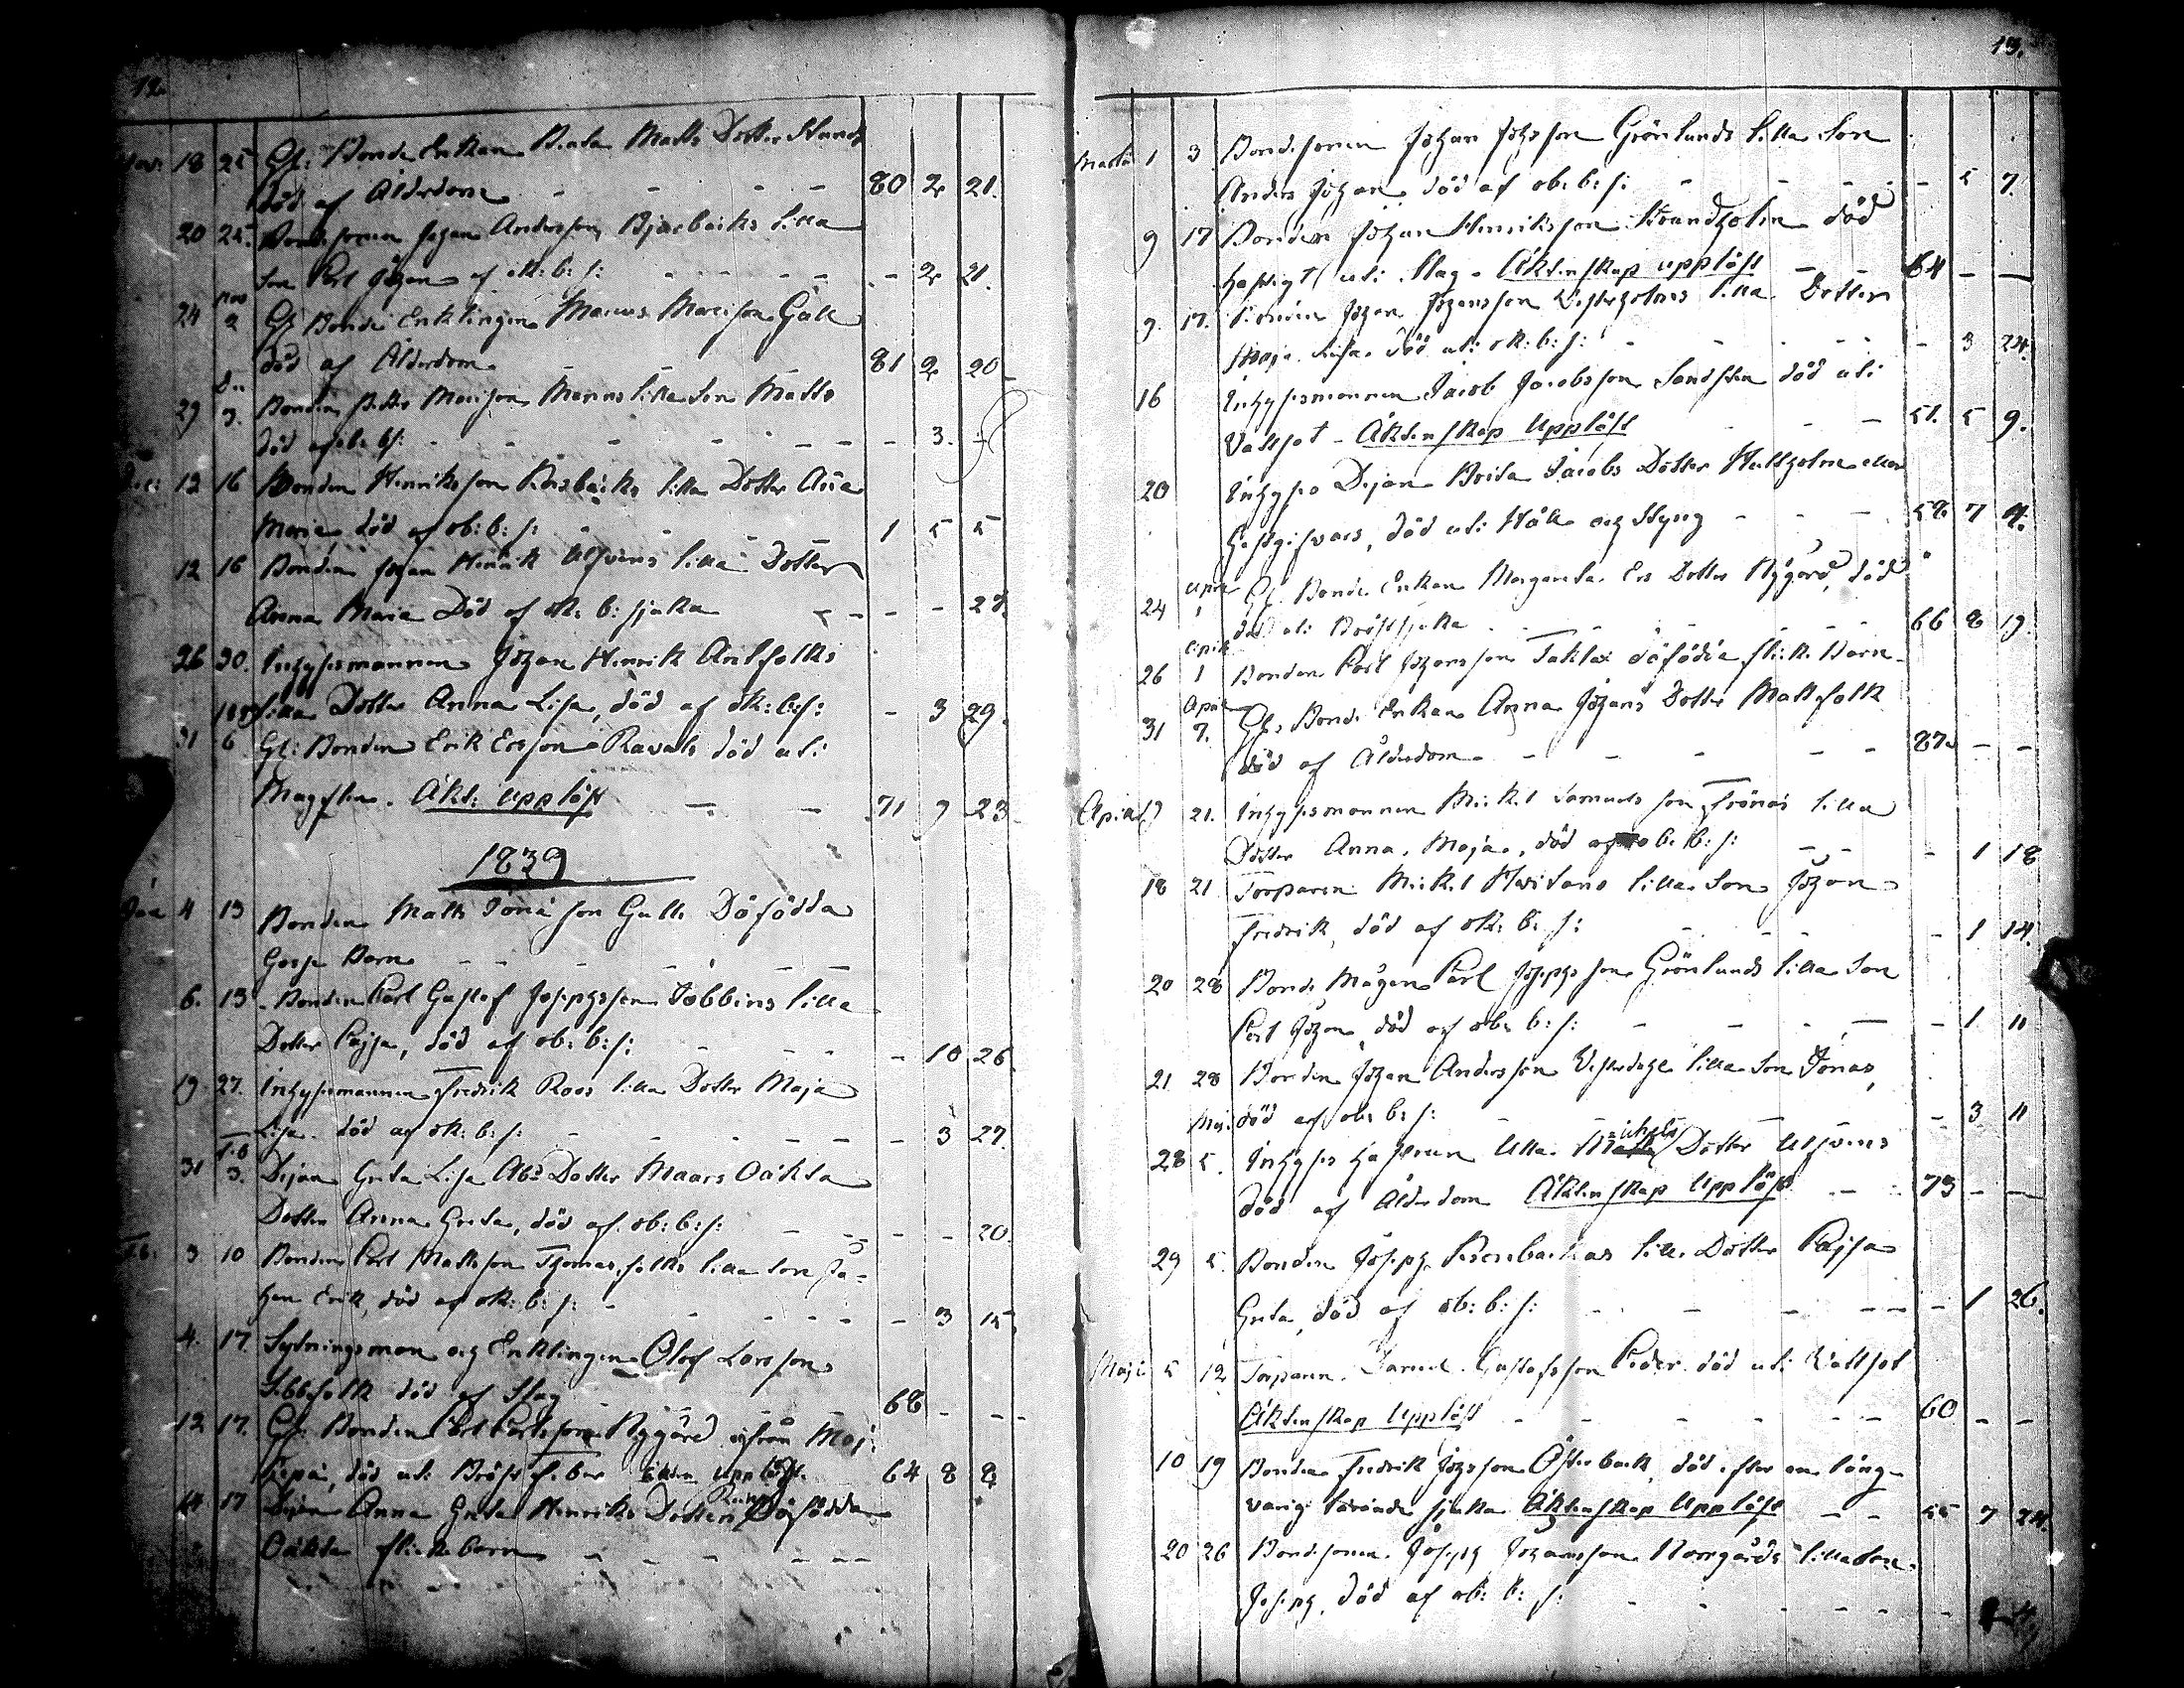 12.
Nov: 18 25 Gl: Bonde Enkan Brita Matts Dotter
död af Ålderdom - - - - 80 2 21.
20 25. Bondesonen Johan Andersson Bjurbäcks lilla
Son Carl Johan af ok: b: s: - - - - - 2 21.
24 Nov 2 Gl Bonde Enklingen Marcus Marcison Gäll
död af Ålderdom 81 2 20
29 D:r 3. Bonden Petter Marison Marins lilla Son Matts
död af ob. b s: - - - - - - 3. -
Dec: 12 16 Bonden Henriksson lilla Dotter
Maria död af ob: b: s: - - - 1 5 5
12 16 Bonden Johan Henrik Ulfvens lilla Dotter
Anna Maria Död af ok: b: sjuka - - - 27.
26 30. Inhysesmannen Johan Henrik Antfolks
lilla Dotter Anna Lisa, död af ok: b: s: - 3 29.
31 6 Gl: Bonden Erik Ersson Ravals död uti
Magplan. Äkt: upplöst - - 71 9 23.
1839
Jan 4 13 Bonden Matts Jonasson Gulls Döfödda
Gosse Barn - - - - - -
6. 13. Bonden Carl Gustaf Josephsson Jobbins lilla
Dotter Cajsa, död af ob: b: s: - - - - 10 26
19 27. Inhysesmannen Fredrik Roos lilla Dotter Maja
Lisa. död af ok: b: s: - - - - - 3 27.
31 Feb 3. Pigan Greta Lisa Abr Dotter Maars Oäkta
Dotter Anna Greta, död af ob: b: s: - - - - 20.
Feb: 3 10 Bonden Carl Mattsson Thomasfolks lilla Son Jo-
han Erik, död af ok: b: s: - - - - - 3 15
4. 17 Sytningsman och Enklingen Olof Larsson
Ebbfolk död af Slag - - - - 68 - -
12 17. Gl: Bonden Carl Carlsson Nygård ifrån
död uti Bröst feber Äkten upplöst. 64 8 8
14 17 Pigan Anna Greta Henriks Dotters Döfödda
Oäkta flickebarn - - - - - -
13.
Martii 1 3 Bondesonen Johan Johsson Grönlunds lilla Son
Anders Johan, död af ob: b: s: - - - - 5 7.
9 17 Bonden Johan Henriksson Strandholm död
hastigt uti Slag. Äktenskap upplöst - - 64 - -
9. 17. Johan Johansson Westerholms lilla Dotter
Maja Lisa. död uti ok: b: s: - - - - - 3 24.
16 Inhysesmannen Jacob Jacobsson död uti
Vattsot - Äktenskap Upplöst - - - 51. 5 9.
20 Inhyses Pigan Brita Jacobs Dotter
död uti Håll och Styng - - - 58 7 4.
24 April 1 Gl. Bonde Enkan Margareta Ers Dotter Nygård, död
död uti Bröstsjuka - - - - 66 8 19.
26 April 1 Bonden Carl Johansson Taklax döfödda flicke Barn
31 April 7. Gl. Bonde Enkan Anna Johans Dotter Mattsfolk
död af Ålderdom - - - - - 87. - -
April 17 21. Inhysesmannen Mickel Samuelsson Frönäs lilla
Dotter Anna Maja., död af ob. b: s: - - - 1 18
18 21 Torparen Mickel lilla Son Johan
Fredrik, död af ok: b: s: - - - - 1 14.
20 28 Bonde Mågen Carl Josephsson Grönlunds lilla Son
Carl Johan, död af ob: b: s: - - - - - 1 11
21 28 Bonden Johan Andersson Westerdahl lilla Son Jonas,
död af ob: b: s: - 3 11
28 Maj. 5. Inhyses Hustrun Ulla Michels Dotter Ulfvens
död af Ålderdom Äktenskap Upplöst - - 73 - -
29 5. Bonden Joseph lilla Dotter Cajsa
Greta, död af ob: b: s: - - - - - 1 26.
Maji 5 12 Torparen. Samuel Gustafsson död uti Vattsot
Äktenskap Upplöst - - - - - - 60 - -
10 19 Bonden Fredrik Johsson Österback, död efter en lång-
varig tärande sjuka Äktenskap Upplöst - - 55 7 24.
20 26 Bondesonen Joseph Johansson Norrgårds lilla Son
Joseph, död af ob: b: s: - - - - -